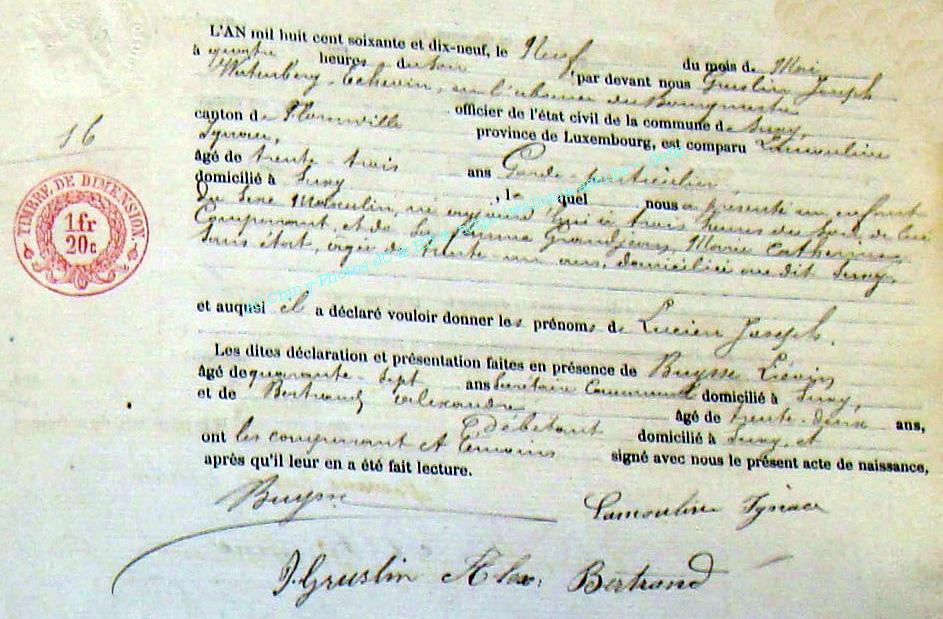 L'AN mil huit cent soixante et dix-neuf, le Neuf du mois de Mai
à quatre heures du soir, par devant nous Gruslin Joseph
Echevin, en l'absence du Bourgmestre
officier de l'état civil de la commune de Suxy,
canton de Florenville province de Luxembourg, est comparu Lamouline
Ignace,
âgé de trente-trois ans Garde-particulier
domicilié à Suxy, lequel nous a présenté un enfant
du sexe Masculin, né aujourd'hui à trois heures du soir, de lui
Comparant, et de son épouse Grandjean, Marie Catherine
Sans état, âgée de trente-un ans, domiciliée au dit Suxy,
et auquel il a déclaré vouloir donner les prénoms de Lucien Joseph.
Les dites déclaration et présentation faites en présence de Buysse Liévin
âgé de quarante-sept ans Secrétaire Communal domicilié à Suxy,
et de Bertrand Alexandre âgé de trente-deux ans,
Débitant domicilié à Suxy, et
ont les comparant et témoins signé avec nous le présent acte de naissance,
après qu'il leur en a été fait lecture.
Buysse Lamouline Ignace
J. Gruslin Alex: Bertrand
16
TIMBRE DE DIMENSION
1 fr
20 c